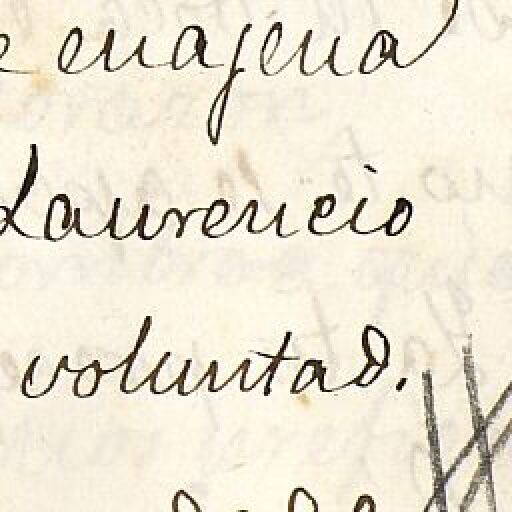 e enagena
Laurencio
voluntad.